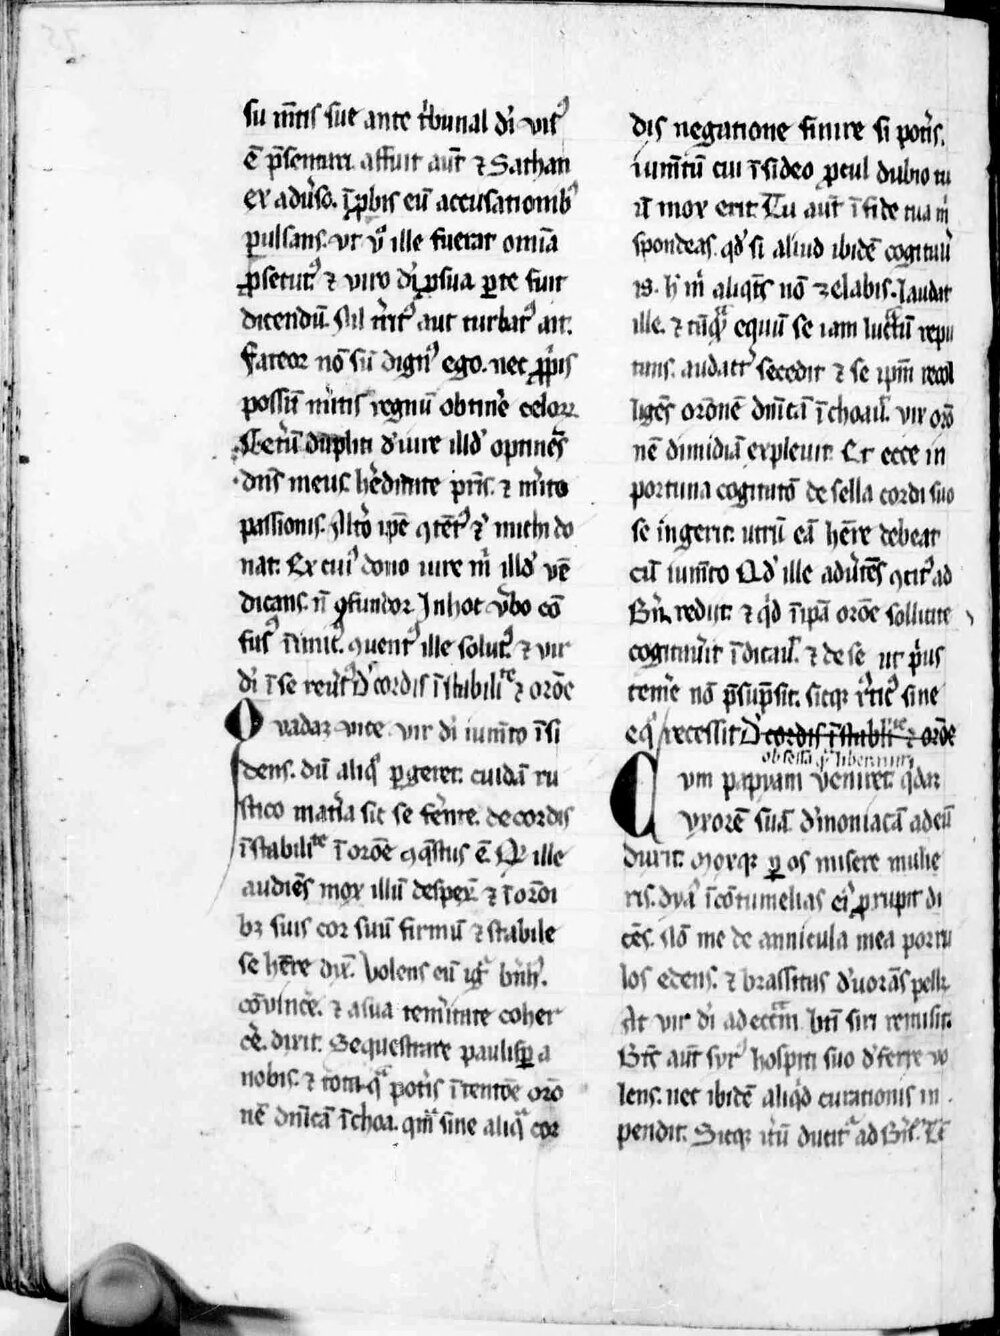 su mẽtis sue ante t̾bunal dı̾ vis᷒
ē p̄sentari. affuit aut̄ ⁊ Sathan
ex adũso. īp̱bis eū accusationib᷒
pulsans. vt ũ ille fuerat omīa
ꝓsecut᷒ ⁊ viro dı̾ ꝓ sua ꝑte fuit
dicendū. Nil t̾rit᷒ aut turbat᷒ ait.
fateor nō sū dign᷒ ego. nec ꝓp̾is
possū m̾itis regnū obtin̾e celoꝝ
Cet̾ū duplici d̾ iure illd̾ optinēs
dn̄s meus. h̾editate pr̄is. ⁊ m̾ito
passionis. Alt̾o ip̄e ꝯtēt᷒ ⁊ᷣ michi do
nat. Ex cui᷒ dono iure m̾ illd̾ vē
dicans. n̄ ꝯfundor. In hoc v̾bo cō
fus᷒ īimic᷒. ꝯuent᷒ ille solut᷒. ⁊ vir
dı̾ ī se reũs᷒ D̾ cordis īstabiliᵗᵉ ⁊ orōe
Quadaꝫ vice vir dı̾ iumēto īsi
dens. dū aliqͦ ꝑgeret. cuidā ru
stico mat̾ia sic se fer̄nte. de cordis
īstabiliᵗᵉ ī orōe ꝯq̄stus ē. Qd̾ ille
audiēs mox illū despex̄. ⁊ ī orōi
bꝫ suis cor suū firmū ⁊ stabile
se hēre dix̄. Volens eū ig̾ b̾nh̾.
cōvinc̾e. ⁊ a sua tem̾itate coher
c̾e. dixit. Sequestrare paulisꝑ a
nobis. ⁊ tota qᵃ pot̾is ītentōe orō
nē dn̄icā īchoa. qm̄ sine aliqᵃ cor
dis negatione finire si pot̾is.
iumētū cui īsideo ꝓcul dubio tu
ū mox erit. Tu aut̄ ī fide tua m̾
spondeas. qd̾ si aliud ibidē cogitaũ
is. h̾ m̾ aliqͣt̾s nō zelabis. Laudat
ille. ⁊ tāqᵃ equū se iam luctū repu
tans. audact̾ secedit ⁊ se ip̄m recol
ligēs orōnē dn̄icā īchoau̾. vix orō
nē dimidiā expleuit. Et ecce in
portuna cogitatō de sella cordi suo
se ingerit. utrū eā hēre debeat
cū iumēto Qd̾ ille adũtēs ꝯcit᷒ ad
B̾n. redijt. ⁊ qͥd īip̄a orōe sollicite
cogitauit īdicau̾. ⁊ de se ut p̾us
tem̾e nō p̄sūpsit. sicqꝫ r̾stic᷒ sine
equͦ recessit D̾ cordis īstabiliᵗᵉ ⁊ orōe
obsessa qͣ liberauit
Cum papyam veniret. qͥdaꝫ
vxorē suā d̾moniacā ad eū
duxit. Moxqꝫ ꝑ os misere mulie
ris. dyaͣ īcōtumelias ei᷒ ꝓrupit di
cēs. Nō me de annicula mea porru
los edens. ⁊ brassicas d̾uorās pellꝫ
At vir dı̾ ad ecc̄am. bt̄i siri remisit.
Bt̄e aut̄ syr᷒ hospiti suo d̾ferre vo
lens. nec ibidē aliqͥd curationis in
pendit. Sicqꝫ it̾ū ducit᷒ ad B̾n̄. Tē